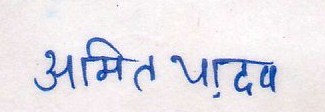 अमित यादव